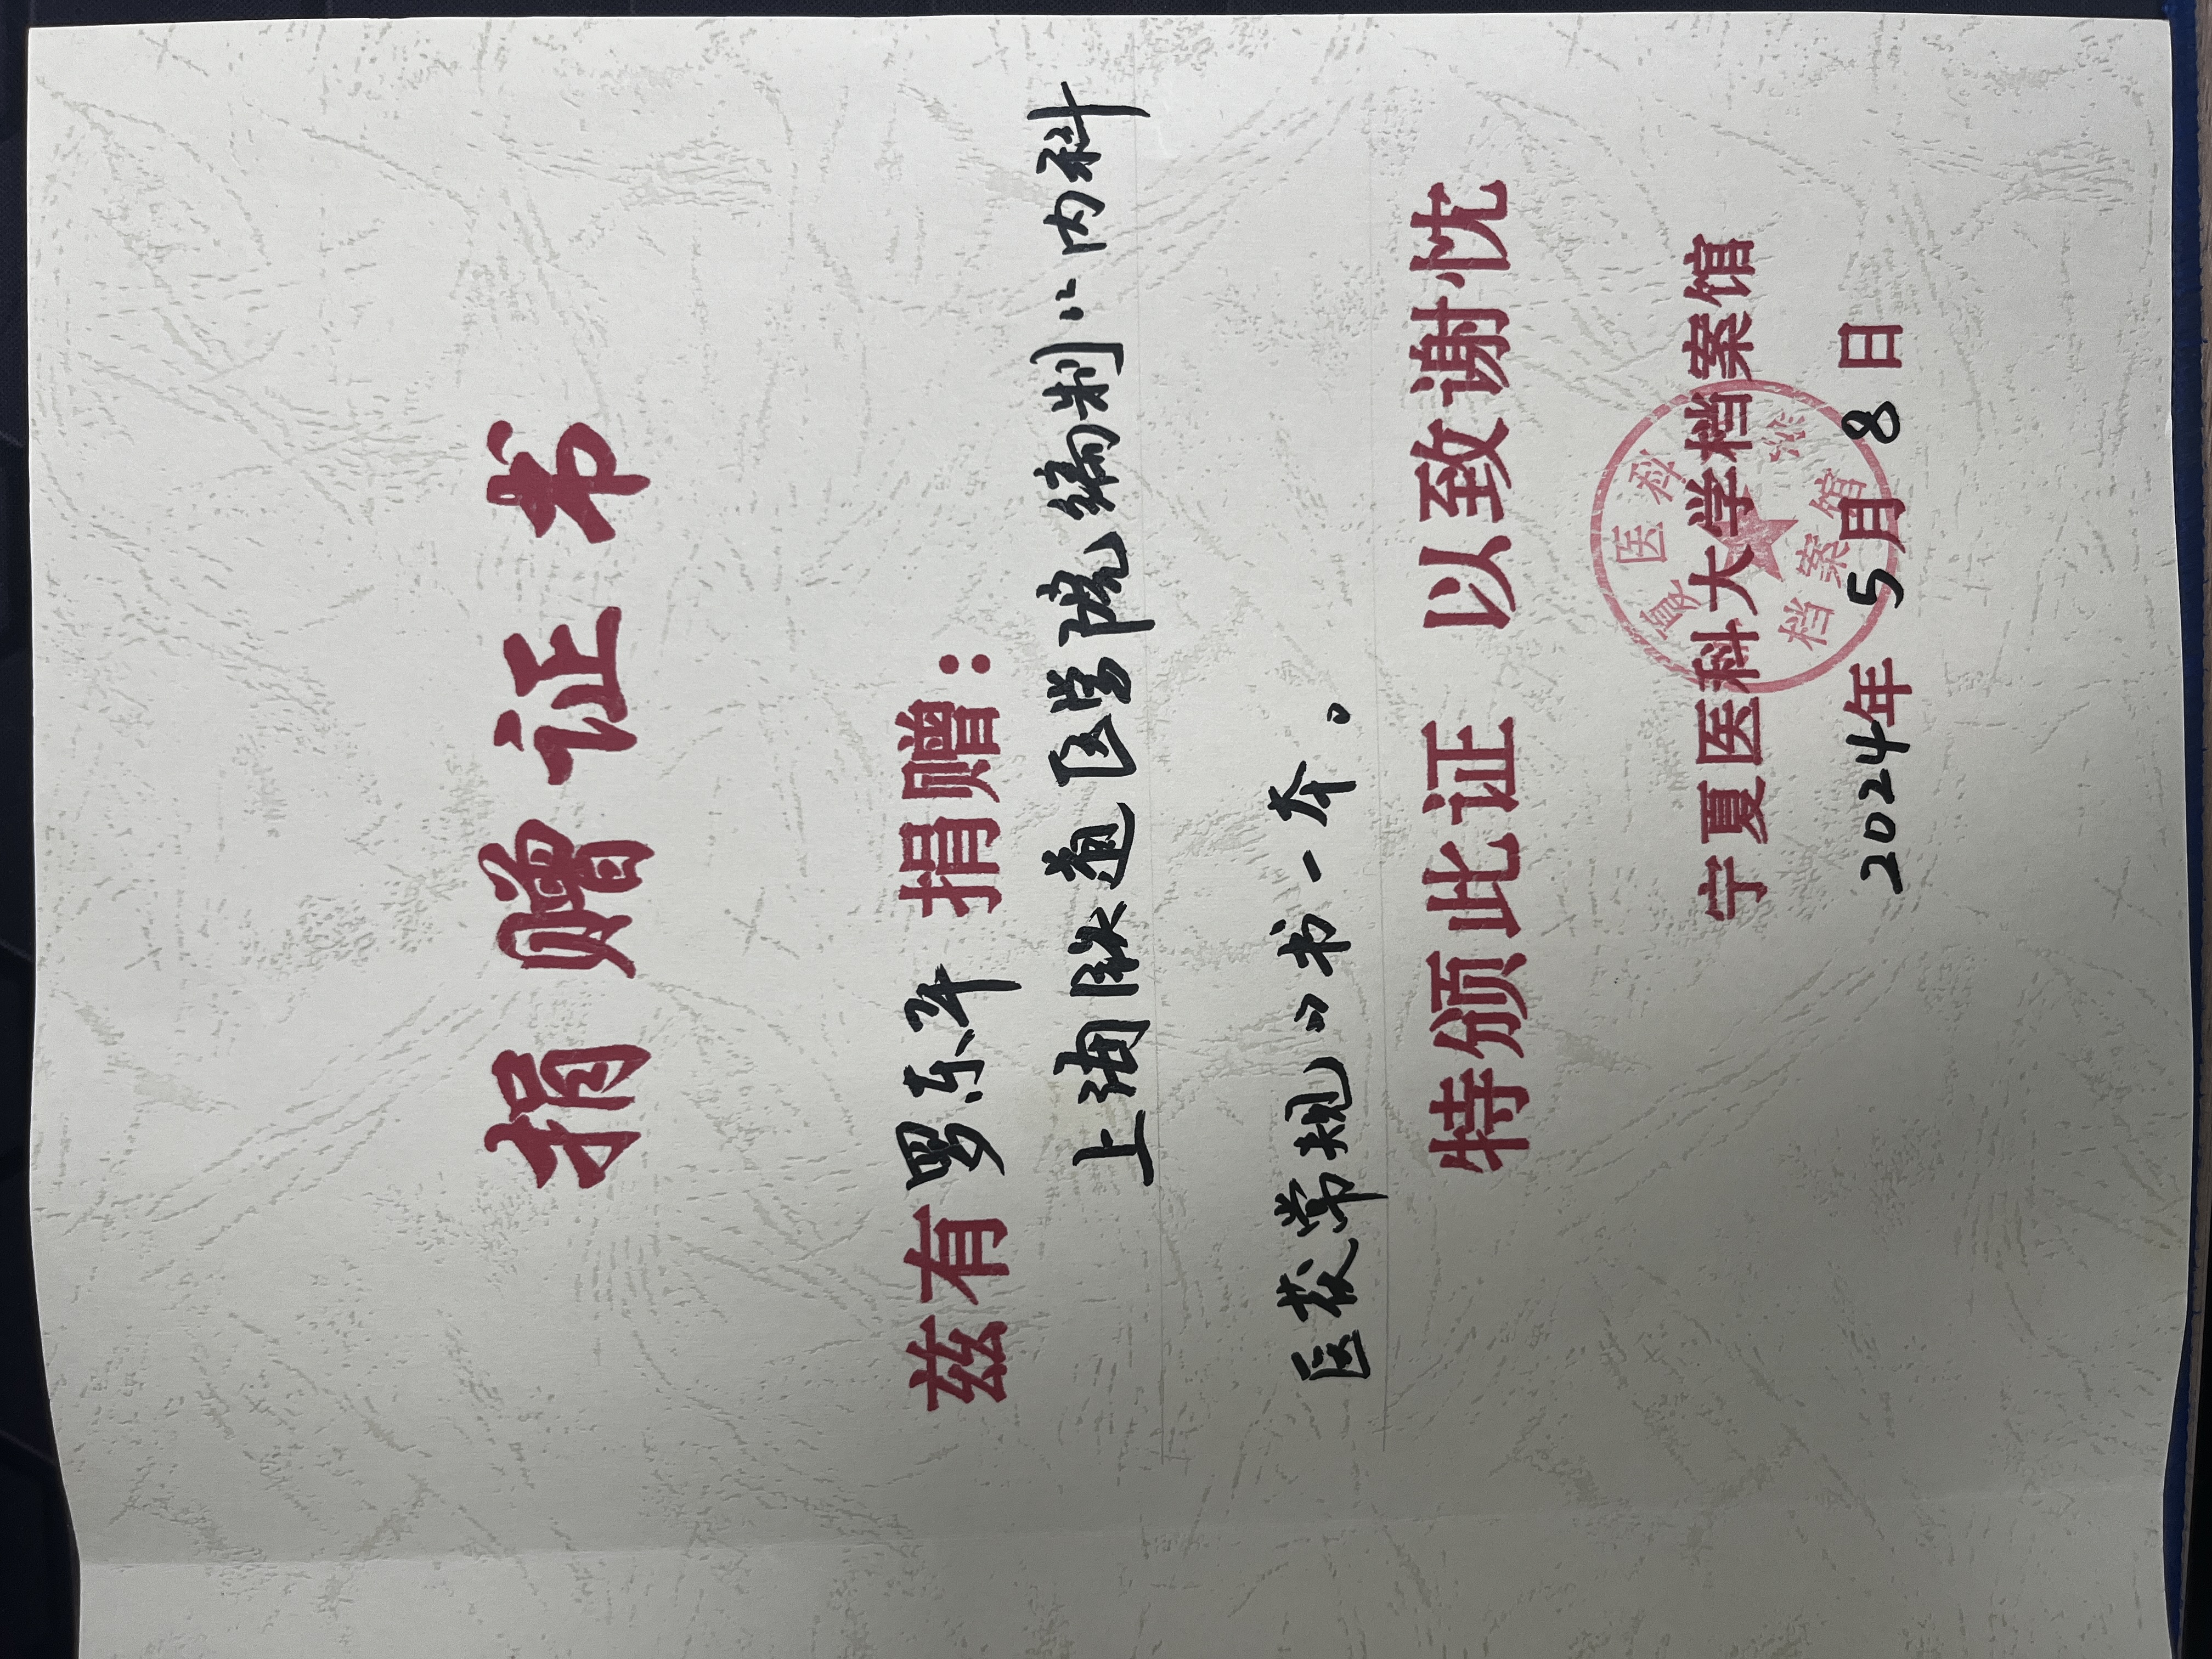 捐赠证书
兹有 罗东 捐赠：
上海道医学院编制《内科
医常规》书一本。
特颁此证 以致谢忱
宁夏医科大学档案馆
夏医科
档案馆
2024年5月8日